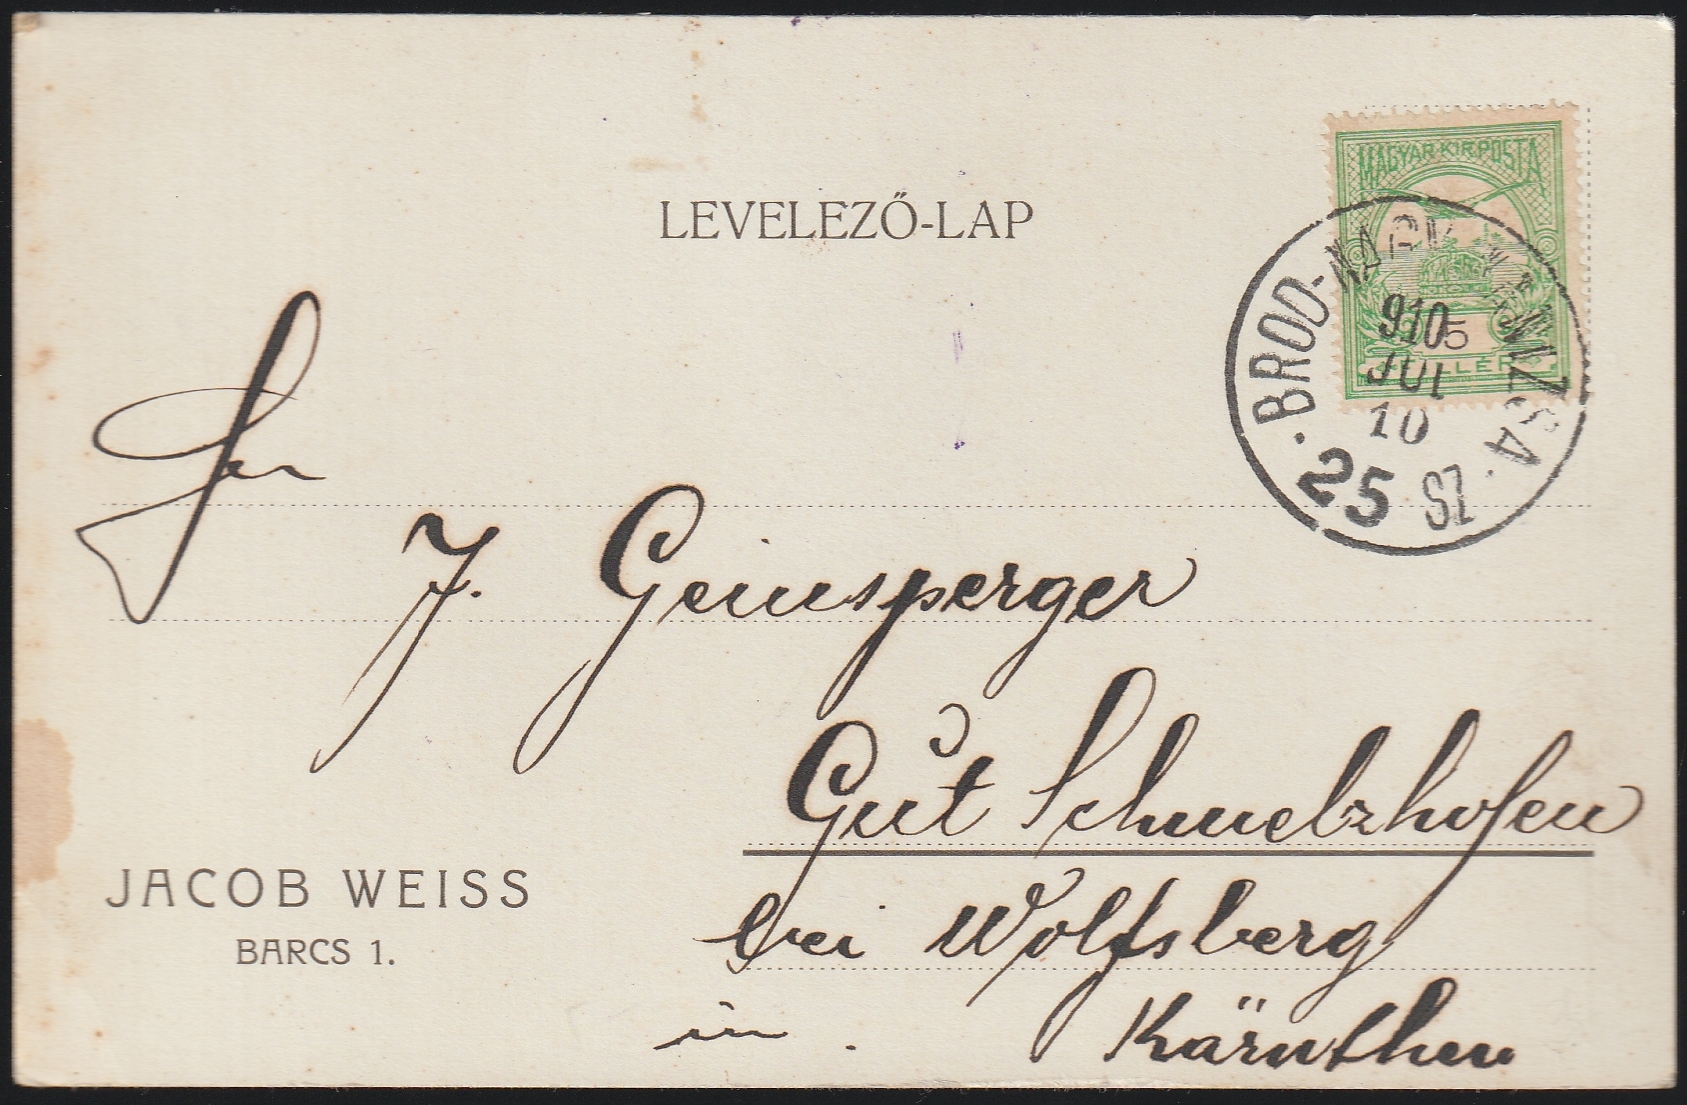 LEVELEZŐ-LAP
MAGYAR KIR. POSTA
5
BROD-NAGYKANIZSA
910
JUL
10
25 SZ
J. Geinsperger
Gut Schmelzhofen
bei Wolfsberg
in Kärnthen
JACOB WEISS
BARCS 1.